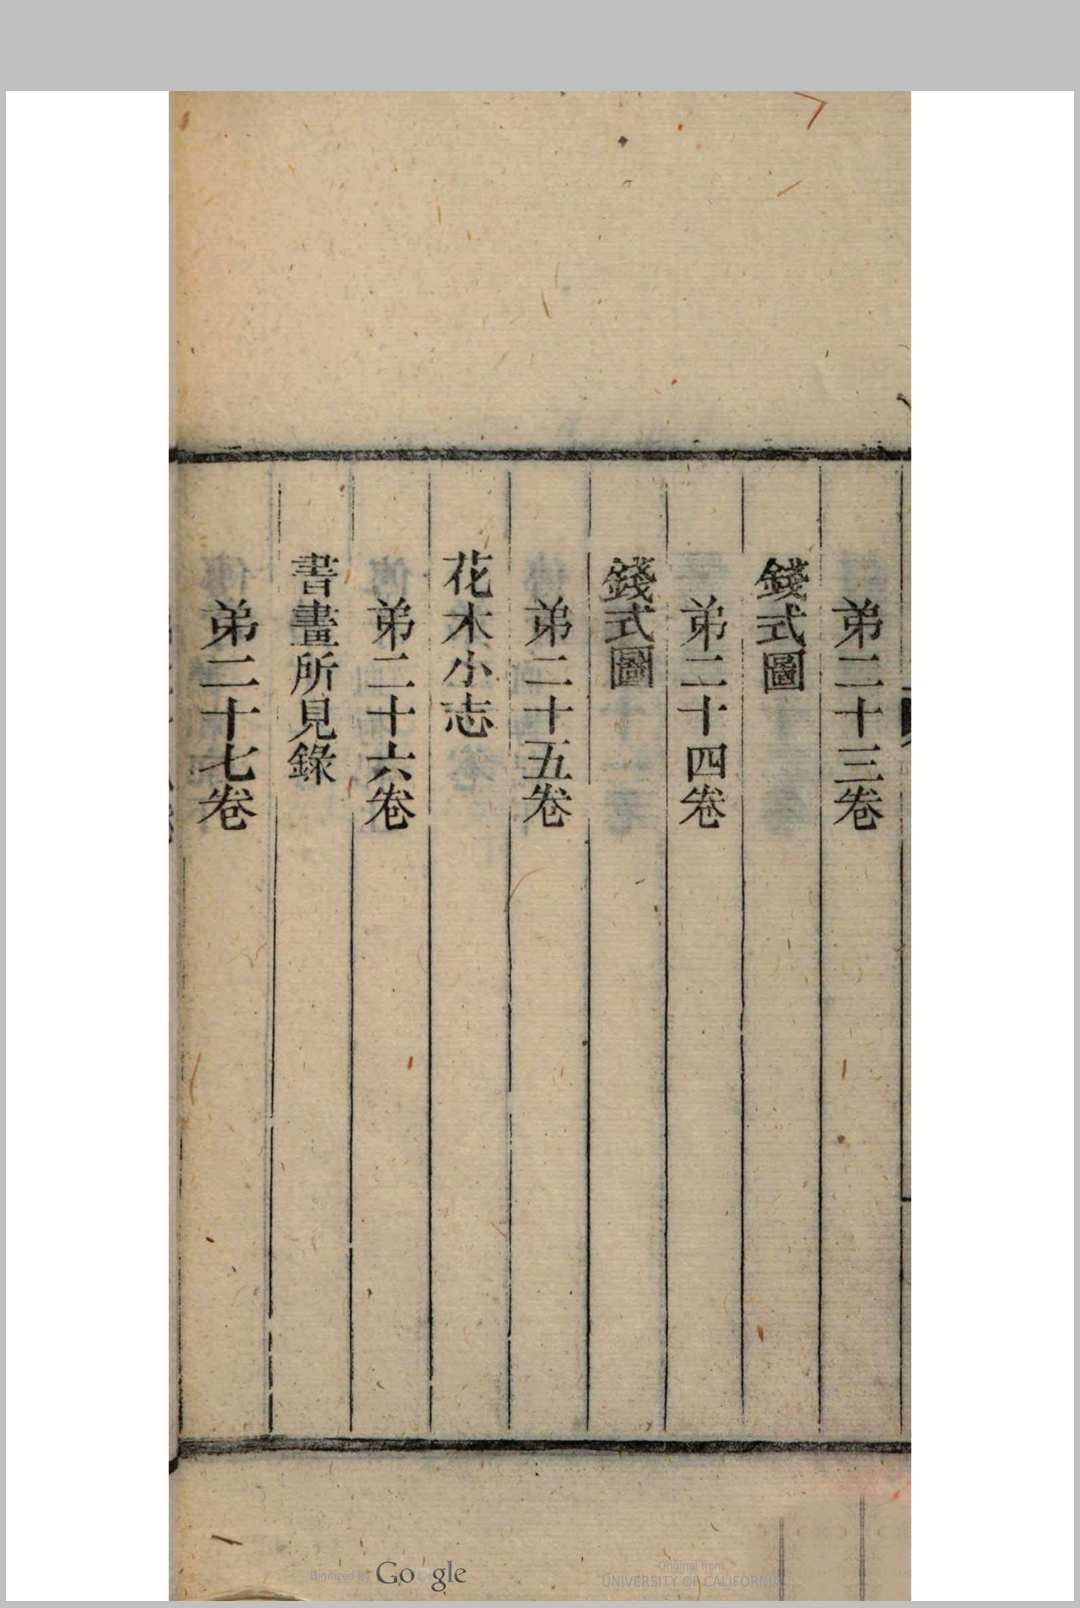 弟二十三卷
錢式圖
弟二十四卷
錢式圖
弟二十五卷
花木小志
弟二十六卷
書畫所見錄
弟二十七卷
Digitized by Google
Original from
UNIVERSITY OF CALIFORNIA